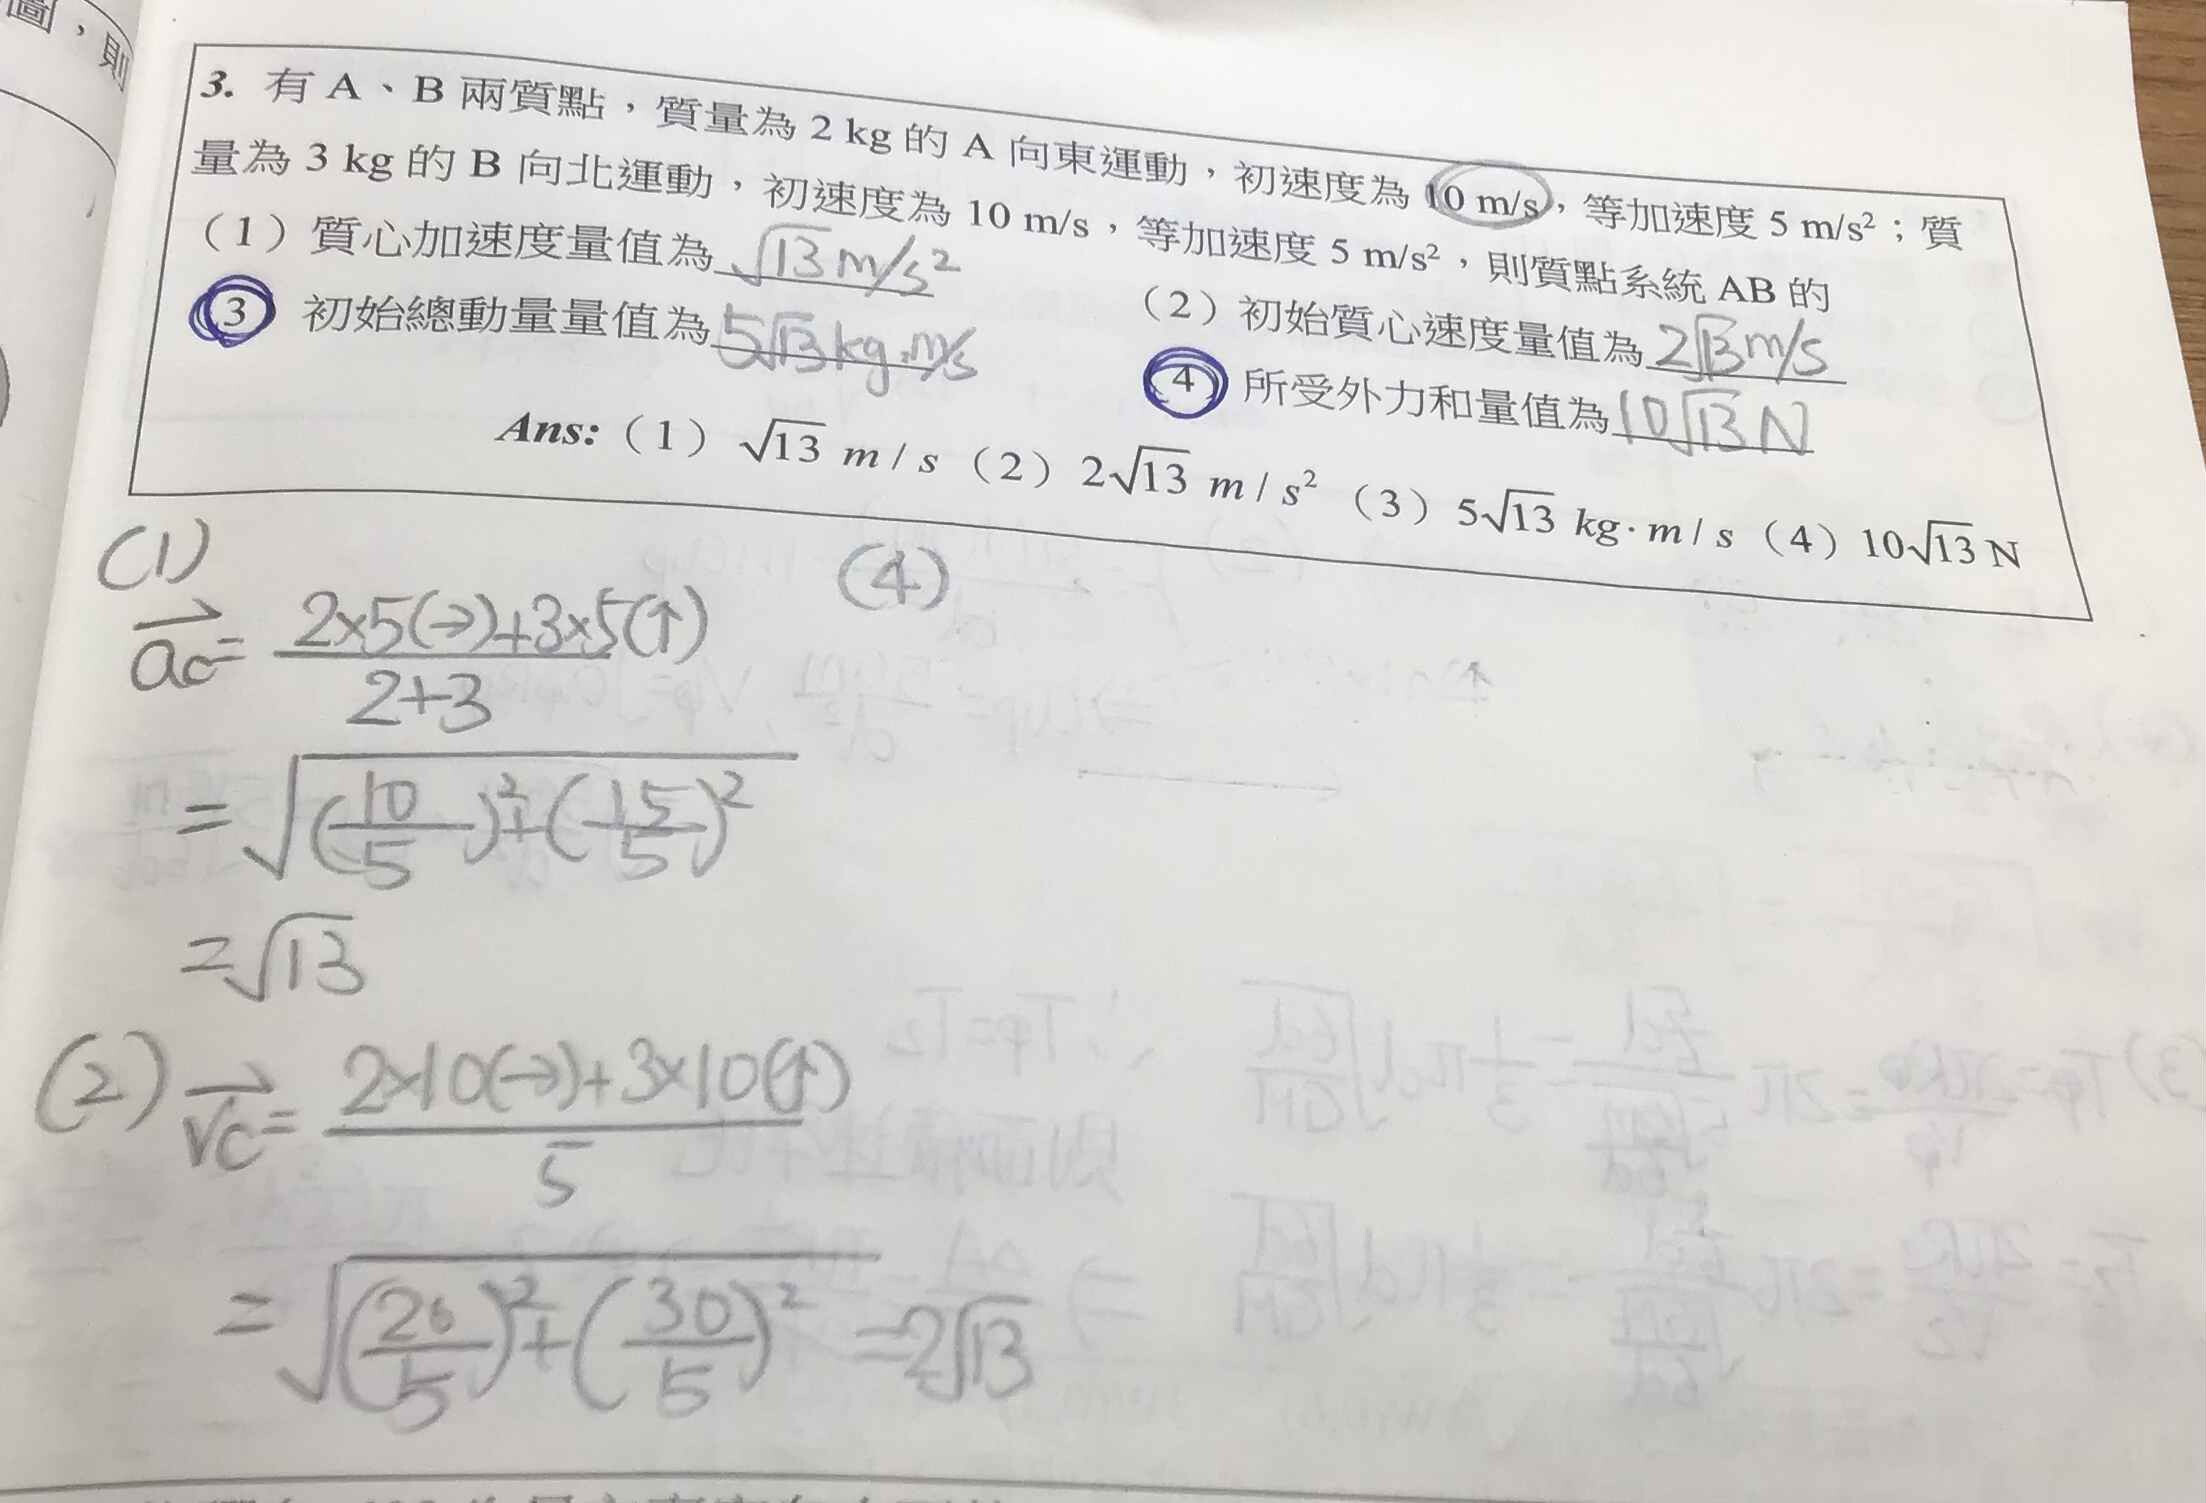 圖，則
3. 有 A、B 兩質點，質量為 2 kg 的 A 向東運動，初速度為 10 m/s，等加速度 5 m/s²；質
量為 3 kg 的 B 向北運動，初速度為 10 m/s，等加速度 5 m/s²，則質點系統 AB 的
（1）質心加速度量值為 √13 m/s²
（2）初始質心速度量值為 2√13 m/s
3 初始總動量量值為 5√13 kg·m/s
4 所受外力和量值為 10√13 N
Ans:（1）√13 m / s（2）2√13 m / s²（3）5√13 kg · m / s（4）10√13 N
(1)
a⃗c = (2×5(→)+3×5(↑))/(2+3)
= √((10/5)²+(15/5)²)
= √13
(4)
(2) v⃗c = (2×10(→)+3×10(↑))/5
= √((20/5)²+(30/5)²) = 2√13